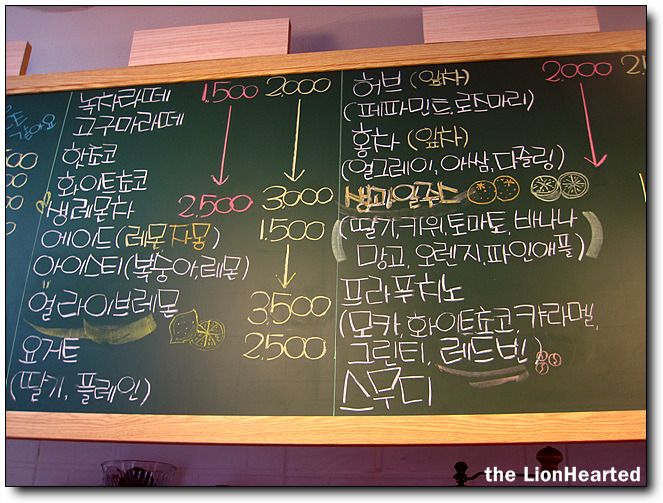 녹차라떼 1,500 2,000
고구마라떼
핫쵸코
화이트쵸코
생레몬차 2,500 3000
에이드 (레몬.자몽) 1,500
아이스티 (복숭아,레몬)
얼라이브레몬 3,500
요거트 2,500
(딸기, 플레인)
허브 (잎차) 2,000
(페파민트,로즈마리)
홍차 (잎차)
(얼그레이, 아쌈, 다즐링)
생과일쥬스
(딸기,키위,토마토,바나나
망고, 오렌지,파인애플)
프라푸치노
(모카, 화이트쵸코, 캬라멜,
그린티, 레드빈)
스무디
the LionHearted